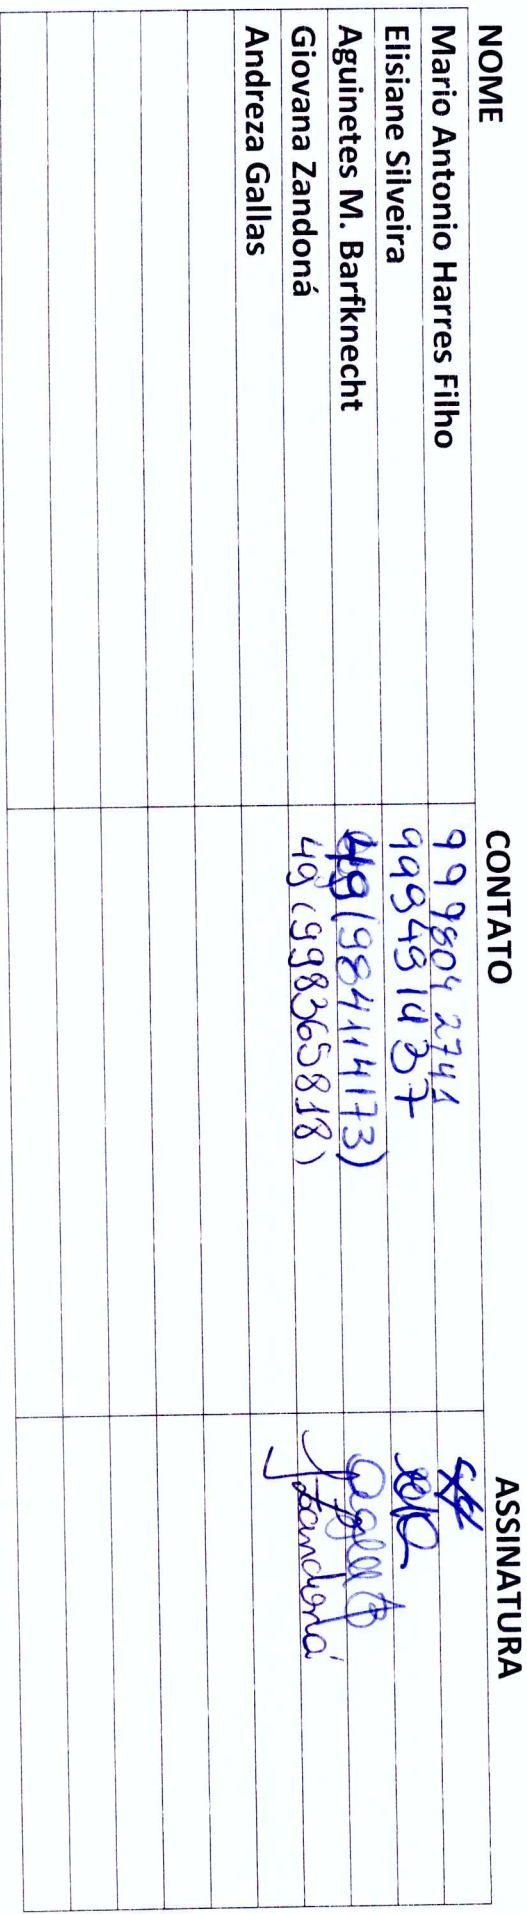 NOME CONTATO ASSINATURA
Mario Antonio Harres Filho 999804 2741
Elisiane Silveira 999491437
Aguinetes M. Barfknecht 49(984114173)
Giovana Zandoná 49(998365818) Zandoná
Andreza Gallas